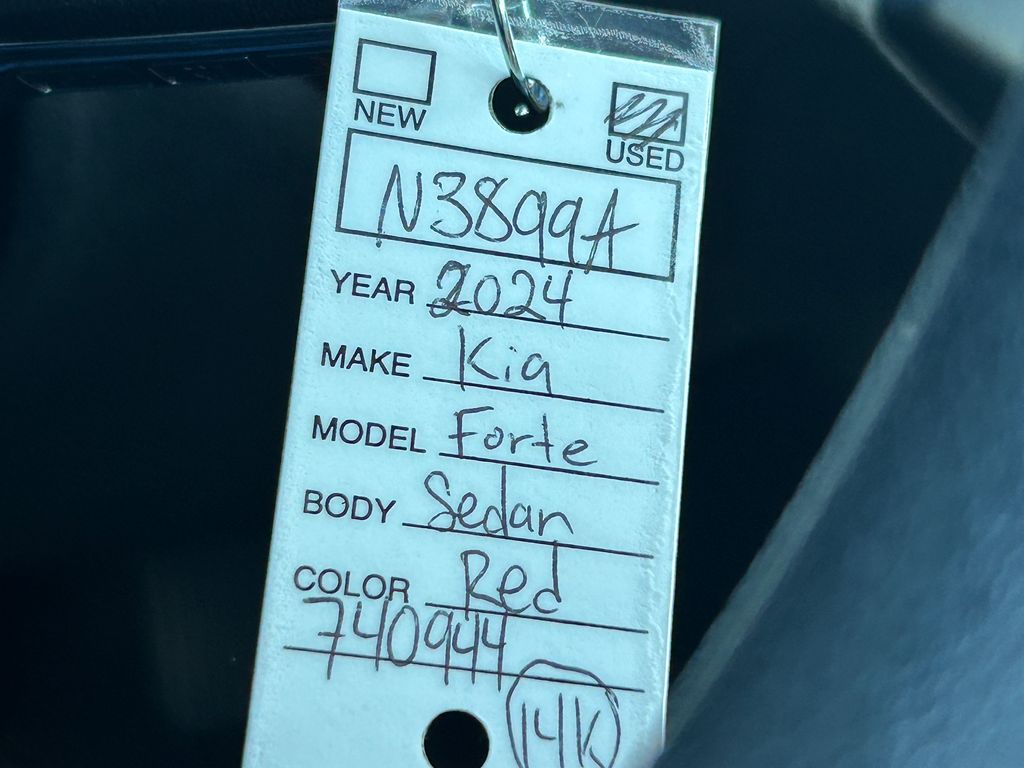 NEW
USED
N3899A
YEAR 2024
MAKE Kia
MODEL Forte
BODY Sedan
COLOR Red
740944
14K